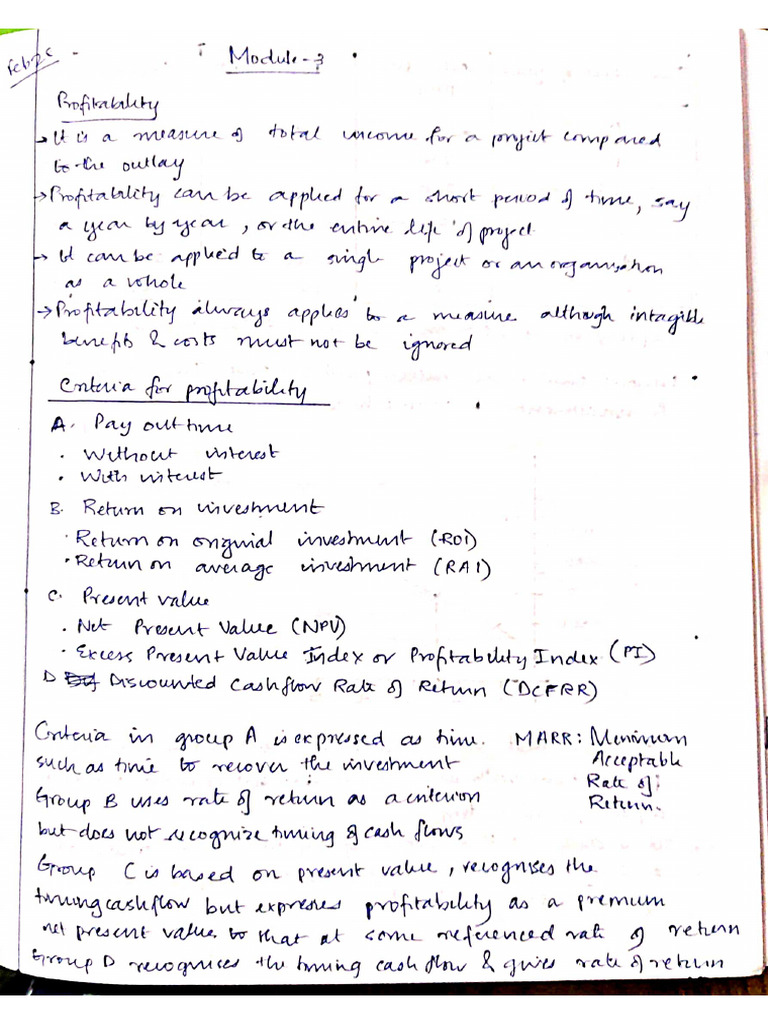 Module-3
Profitability
→ It is a measure of total income for a project compared
to the outlay
→ Profitability can be applied for a short period of time, say
a year by year, or the entire life of project
→ It can be applied to a single project or an organisation
as a whole
→ Profitability always applies to a measure although intagible
benefits & costs must not be ignored
Criteria for profitability
A. Pay out time
. Without interest
. With interest
B. Return on investment
. Return on original investment (ROI)
. Return on average investment (RAI)
C. Present value
. Net Present Value (NPV)
. Excess Present Value Index or Profitability Index (PI)
D Discounted Cashflow Rate of Return (DCFRR)
Criteria in group A is expressed as time. MARR: Minimum
such as time to recover the investment Acceptable
Rate of
Group B uses rate of return as a criterion Return.
but does not recognize timing of cash flows
Group C is based on present value, recognises the
timing cashflow but expresses profitability as a premium
net present value to that at some referenced rate of return
Group D recognises the timing cash flow & gives rate of return